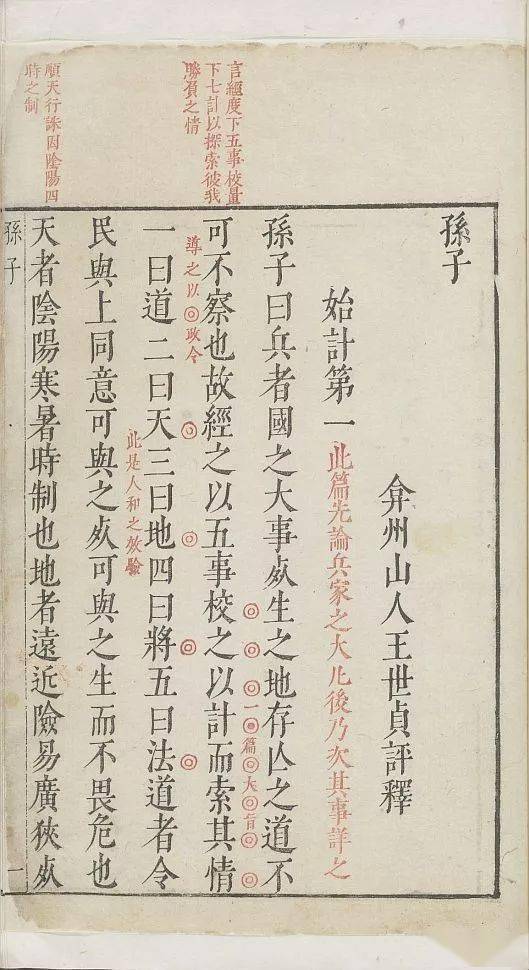 孫子
弇州山人王世貞評釋
始計第一 此篇先論兵家之大凡後乃次其事詳之
言經度下五事校量
下七計以探索彼我
勝負之情
孫子曰兵者國之大事死生之地存亾之道不
一篇大旨
可不察也故經之以五事校之以計而索其情
導之以政令
一曰道二曰天三曰地四曰將五曰法道者令
此是人和之效驗
民與上同意可與之死可與之生而不畏危也
順天行誅因陰陽四
時之制
天者陰陽寒暑時制也地者遠近險易廣狹死
孫子
一